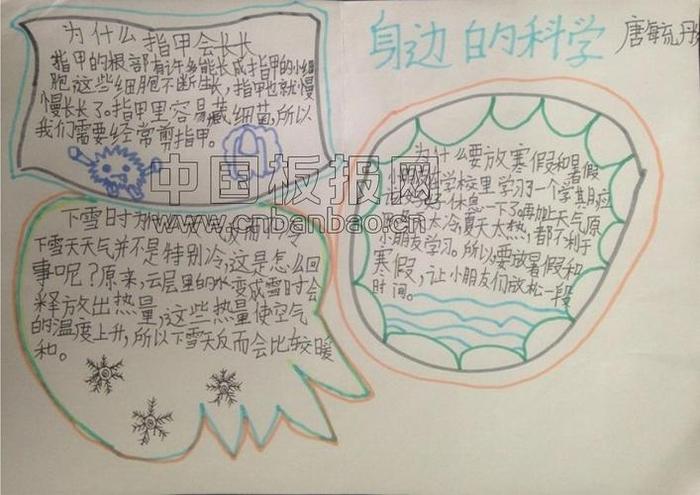 身边的科学
唐毓彤
为什么指甲会长长
指甲的根部有许多能长成指甲的小细
胞这些细胞不断生长,指甲也就慢
慢长长了。指甲里容易藏细菌,所以
我们需要经常剪指甲。
中国板报网
www.cnbanbao.cn
下雪时为
下雪天天气并不是特别冷,这是怎么回
事呢?原来,云层里的水变成雪时会
释放出热量,这些热量使空气
的温度上升,所以下雪天反而会比较暖
和。
为什么要放寒假和暑假
学校里学习一个学期应
休息一下了再加上天气原
太冷,夏天太热,都不利于
小朋友学习。所以要放暑假和
寒假,让小朋友们放松一段
时间。